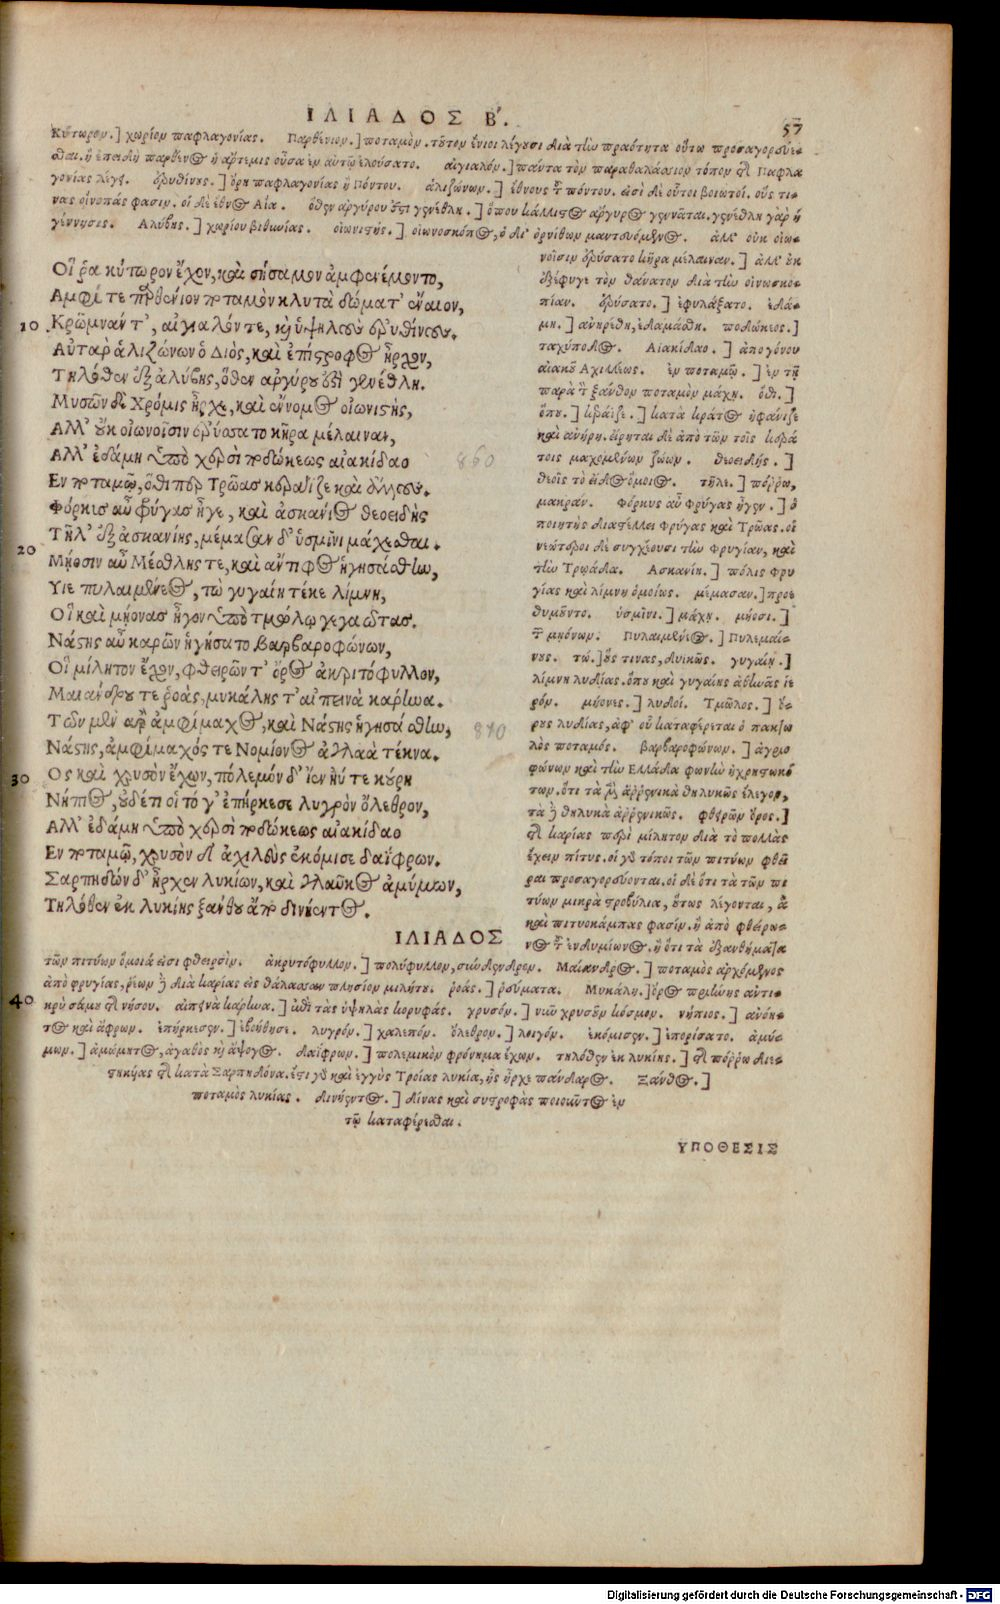 ΙΛΙΑΔΟΣ Β΄.
57
Κύτωρον.] χωρίον παφλαγονίας. Παρθένιον.] ποταμὸν. τοῦτον ἔνιοι λέγουσι διὰ τὴν πραότητα οὕτω προσαγορεύε-
σθαι. ἢ ἐπειδὴ παρθένος ἡ ἄρτεμις οὖσα ἐν αὐτῷ ἐλούσατο. αἰγιαλόν.] πάντα τὸν παραθαλάσσιον τόπον τῆς Παφλα
γονίας λέγει. ἐρυθίνους.] ὄρη παφλαγονίας ἢ Πόντου. ἁλιζώνων.] ἔθνους τοῦ πόντου. εἰσὶ δὲ οὗτοι βοιωτοί. οὕς τι-
νας οἰνοπάς φασιν. οἱ δὲ ἔθνος Αἶα. ὅθεν ἀργύρου ἐστὶ γενέθλη.] ὅπου κάλλιστος ἄργυρος γεννᾶται. γενέθλη γὰρ ἡ
γέννησις. Αλύβης.] χωρίου βιθυνίας. οἰωνιστής.] οἰωνοσκόπος, ὁ δι' ὀρνίθων μαντευόμενος. ἀλλ' οὐκ οἰω-
Οἵ ῥα κύτωρον ἔχον, καὶ σήσαμον ἀμφενέμοντο,
Αμφί τε παρθένιον ποταμὸν κλυτὰ δώματ' ἔναιον,
10 Κρῶμνάν τ', αἰγιαλόν τε, καὶ ὑψηλοὺς ἐρυθίνους.
Αὐτὰρ ἁλιζώνων ὁ Διὸς, καὶ ἐπίστροφος ἦρχον,
Τηλόθεν ἐξ ἀλύβης, ὅθεν ἀργύρου ἐστὶ γενέθλη.
Μυσῶν δὲ Χρόμις ἦρχε, καὶ ἔννομος οἰωνιστής,
Αλλ' οὐκ οἰωνοῖσιν ἐρύσατο κῆρα μέλαιναν,
Αλλ' ἐδάμη ὑπὸ χερσὶ ποδώκεως αἰακίδαο
860
Εν ποταμῷ, ὅθι περ Τρῶας κεράϊζε καὶ ἄλλους.
Φόρκις αὖ φρύγας ἦγε, καὶ ἀσκάνιος θεοειδὴς
20 Τῆλ' ἐξ ἀσκανίης, μέμασαν δ' ὑσμῖνι μάχεσθαι.
Μῄοσιν αὖ Μέσθλης τε, καὶ ἄντιφος ἡγησάσθην,
Υἷε πυλαιμένεος, τὼ γυγαίη τέκε λίμνη,
Οἳ καὶ μῄονας ἦγον ὑπὸ τμώλῳ γεγαῶτας.
Νάστης αὖ καρῶν ἡγήσατο βαρβαροφώνων,
Οἳ μίλητον ἔχον, φθειρῶν τ' ὄρος ἀκριτόφυλλον,
Μαιάνδρου τε ῥοάς, μυκάλης τ' αἰπεινὰ κάρηνα.
Τῶν μὲν ἄρ' ἀμφίμαχος, καὶ Νάστης ἡγησάσθην,
870
Νάστης, ἀμφίμαχός τε Νομίονος ἀγλαὰ τέκνα.
30 Ος καὶ χρυσὸν ἔχων, πόλεμόν δ' ἴεν ἠΰτε κούρη
Νήπιος, οὐδέ τι οἱ τό γ' ἐπήρκεσε λυγρὸν ὄλεθρον,
Αλλ' ἐδάμη ὑπὸ χερσὶ ποδώκεως αἰακίδαο
Εν ποταμῷ, χρυσὸν δ' ἀχιλεὺς ἐκόμισε δαΐφρων.
Σαρπηδὼν δ' ἦρχεν λυκίων, καὶ γλαῦκος ἀμύμων,
Τηλόθεν ἐκ λυκίης ξάνθου ἄπο δινήεντος.
ΙΛΙΑΔΟΣ
νοῖσιν ἐρύσατο κῆρα μέλαιναν.] ἀλλ' ἐκ
ἐξέφυγε τὸν θάνατον διὰ τὴν οἰωνοσκο-
πίαν. ἐρύσατο.] ἐφυλάξατο. ἐδά-
μη.] ἀνῃρέθη, ἐδαμάσθη. ποδώκεος.]
ταχύποδος. Αἰακίδαο.] ἀπογόνου
αἰακοῦ Αχιλλέως. ἐν ποταμῷ.] ἐν τῇ
παρὰ τὸν ξάνθον ποταμὸν μάχῃ. ὅθι.]
ὅπου.] κεράϊζε.] κατὰ κράτος ἠφάνιζε
καὶ ἀνῄρει. εἴρηται δὲ ἀπὸ τῶν τοῖς κέρα
τοις μαχομένων ζώων. θεοειδής.]
θεοῖς τὸ εἶδος ὅμοιος. τῆλε.] πόῤῥω,
μακράν. φόρκυς αὖ φρύγας ἦγεν.] ὁ
ποιητὴς διαστέλλει φρύγας καὶ Τρῶας. οἱ
νεώτεροι δὲ συγχέουσι τὴν φρυγίαν, καὶ
τὴν Τρῳάδα. Ασκανίη.] πόλις φρυ
γίας καὶ λίμνη ὁμοίως. μέμασαν.] προε
θυμοῦντο. ὑσμῖνι.] μάχῃ. μῄοσι.]
τῶν μῃόνων. Πυλαιμένεος.] Πυλεμαί-
νους. τώ.] οὕς τινας, δυικῶς. γυγαίη.]
λίμνη λυδίας. ὅπου καὶ γυγαίης ἀθηνᾶς ἱε
ρόν. μῄονες.] λυδοί. Τμῶλος.] ὄ-
ρους λυδίας, ἀφ' οὗ καταφέρεται ὁ πακτω
λὸς ποταμός. βαρβαροφώνων.] ἀγριο
φώνων καὶ τὴν Ελλάδα φωνὴν ἠχρειωκό
των. ὅτι τὰ μὲν ἀῤῥενικὰ θηλυκῶς ἔλεγον,
τὰ δὲ θηλυκὰ ἀῤῥενικῶς. φθειρῶν ὄρος.]
τῆς καρίας περὶ μίλητον διὰ τὸ πολλὰς
ἔχειν πίτυς. οἱ γὰρ τόποι τῶν πιτύων φθεῖ
ραι προσαγορεύονται. οἱ δὲ ὅτι τὰ τῶν πι
τύων μικρὰ στροβίλια, οὕτως λέγονται, ἃ
καὶ πιτυοκάμπας φασίν. ἢ ἀπὸ φθειρω-
νος τοῦ ἐνδυμίωνος. ἢ ὅτι τὰ ἐξανθήματα
τῶν πιτύων ὅμοιά εἰσι φθειρσίν. ἀκριτόφυλλον.] πολύφυλλον, σύνδενδρον. Μαίανδρος.] ποταμὸς ἀρχόμενος
ἀπὸ φρυγίας, ῥέων δὲ διὰ καρίας εἰς θάλασσαν πλησίον μιλήτου. ῥοάς.] ῥεύματα. Μυκάλη.] ὄρος πριήνης ἀντι-
40 κρὺ σάμου τῆς νήσου. αἰπεινὰ κάρηνα.] κατὰ τὰς ὑψηλὰς κορυφάς. χρυσόν.] νῦν χρυσοῦν κόσμον. νήπιος.] ἀνόη-
τος καὶ ἄφρων. ἐπήρκεσεν.] ἐβοήθησε. λυγρόν.] χαλεπόν. ὄλεθρον.] λοιγόν. ἐκόμισεν.] ἐπορίσατο. ἀμύ-
μων.] ἀμώμητος, ἀγαθὸς ἢ ἄψογος. δαΐφρων.] πολεμικὸν φρόνημα ἔχων. τηλόθεν ἐκ λυκίης.] τῆς πόῤῥω διε-
στηκυίας τῆς κατὰ Σαρπηδόνα. ἔστι γὰρ καὶ ἐγγὺς Τροίας λυκία, ἧς ἦρχε πάνδαρος. Ξάνθος.]
ποταμὸς λυκίας. δινήεντος.] δίνας καὶ συστροφὰς ποιοῦντος ἐν
τῷ καταφέρεσθαι.
ΥΠΟΘΕΣΙΣ
Digitalisierung gefördert durch die Deutsche Forschungsgemeinschaft - DFG